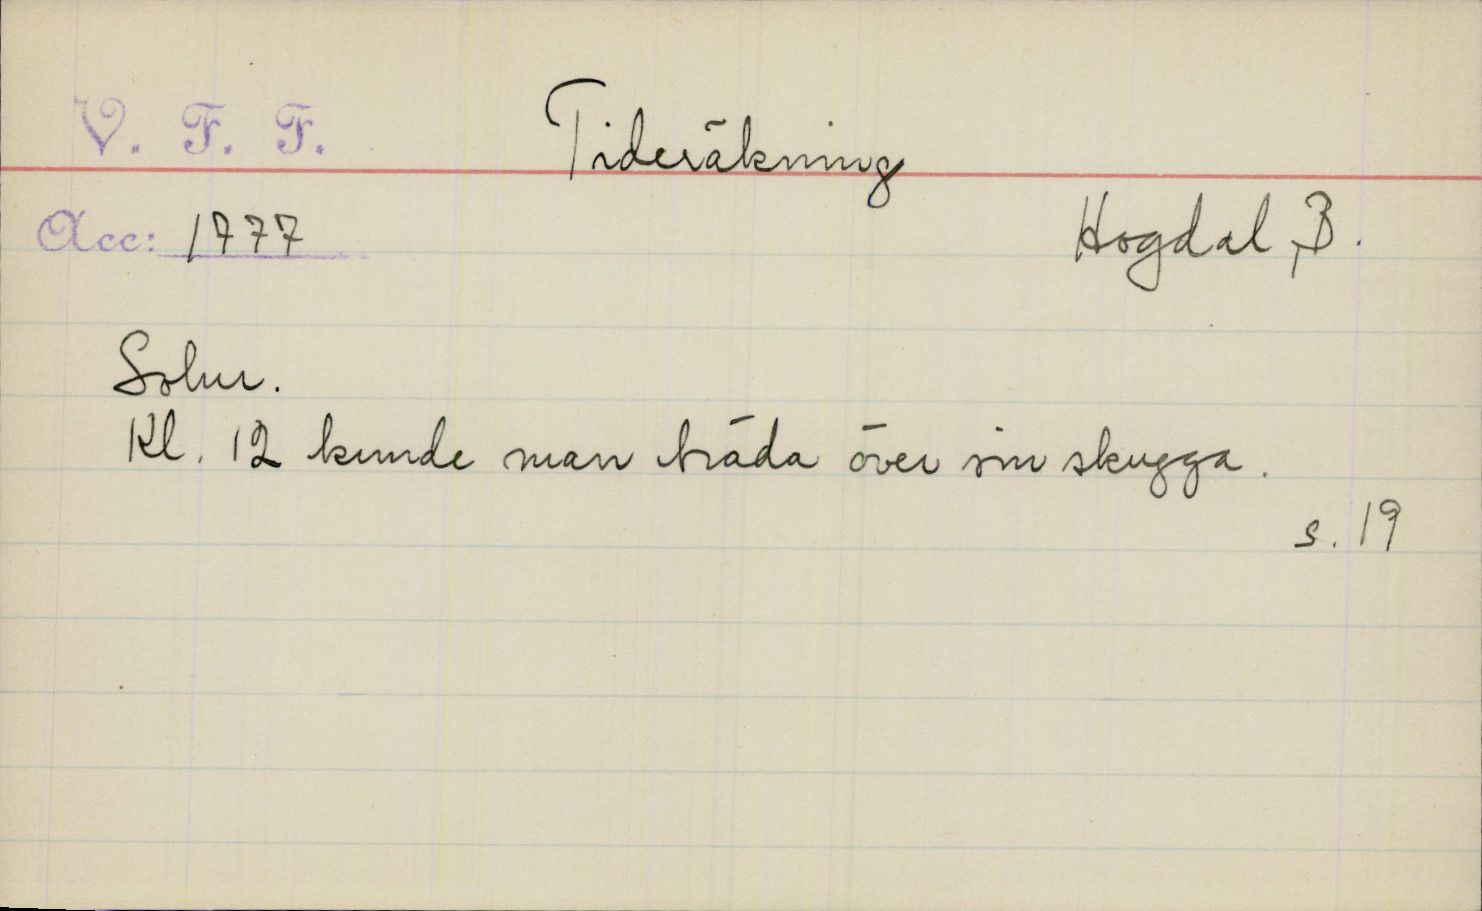 V. F. F.
Tideräkning
Acc: 1777
Hogdal, B.
Solur.
Kl. 12 kunde man träda över sin skugga.
s. 19